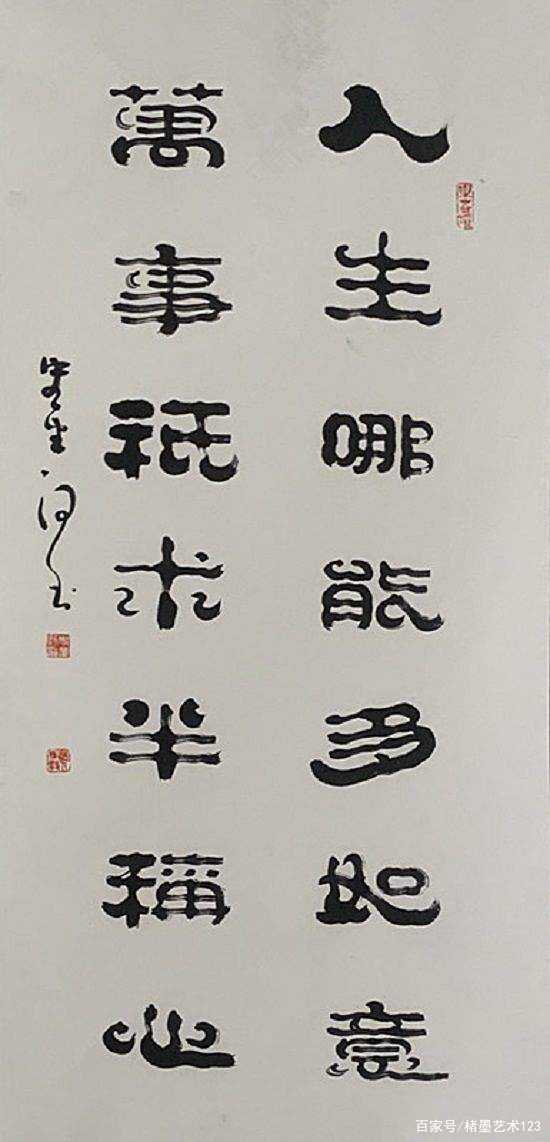 人生哪能多如意
萬事祇求半稱心
百家号/楮墨艺术123